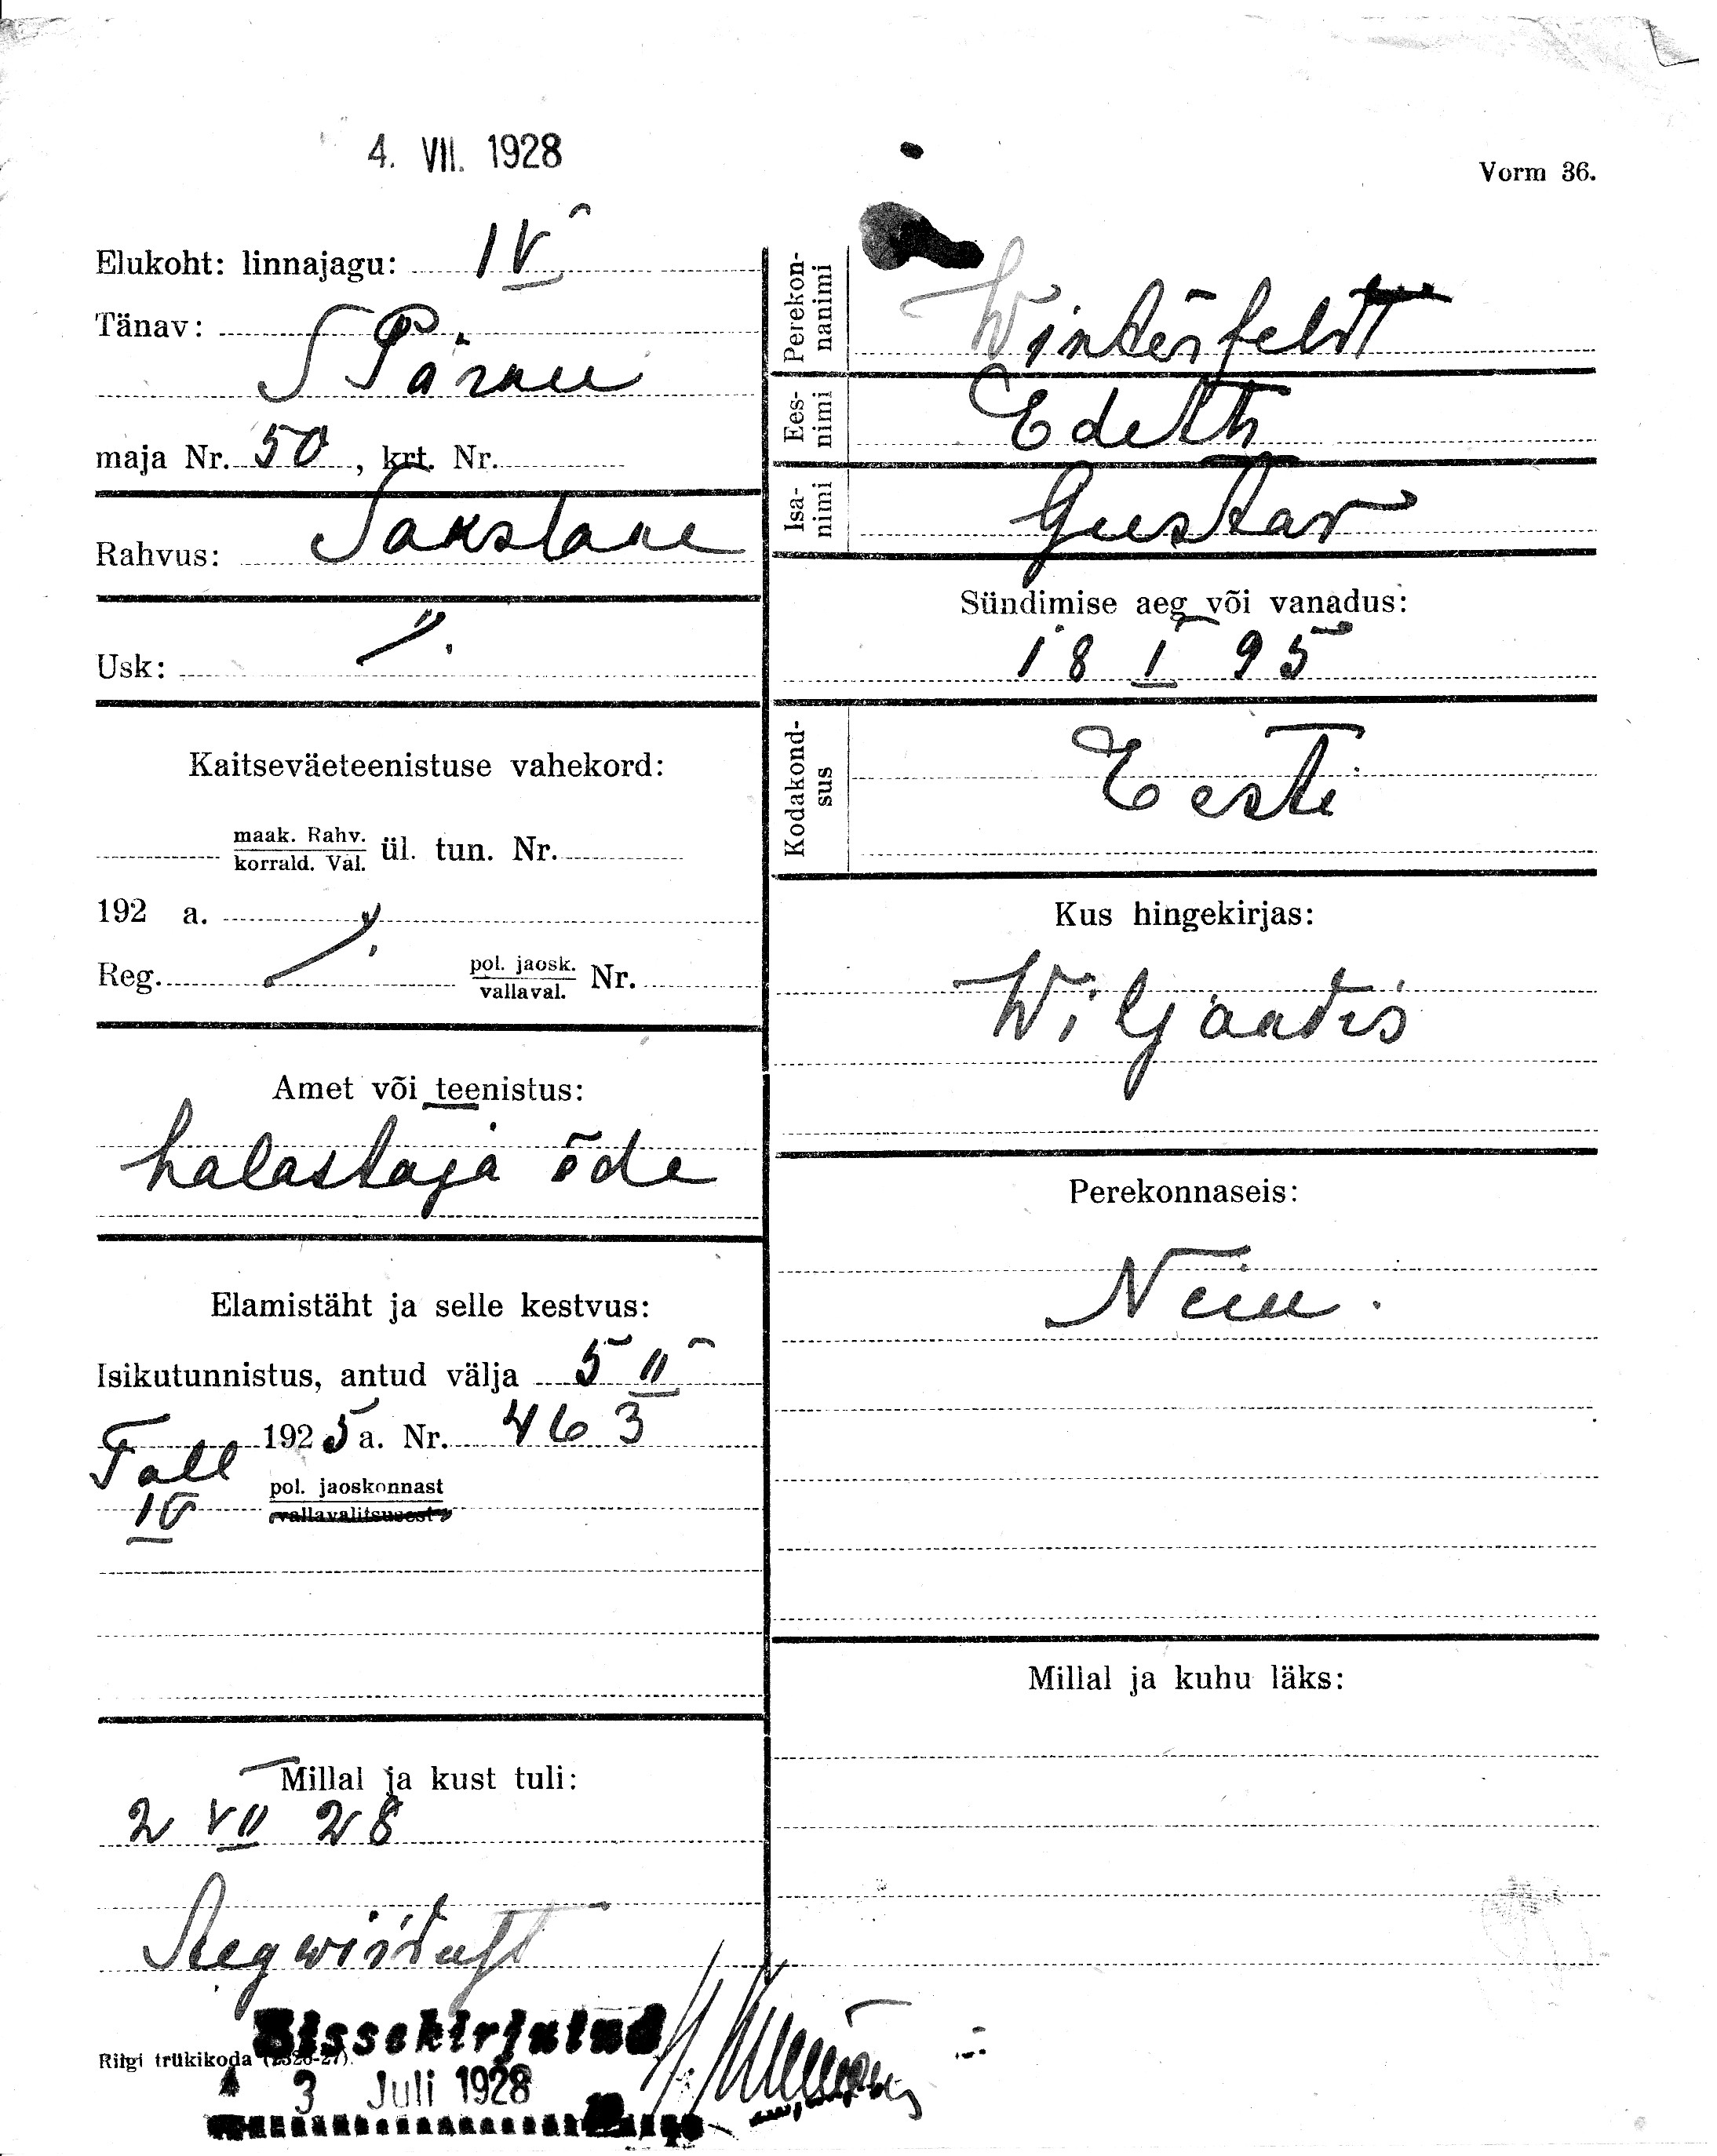 4. VII. 1928
Vorm 36.
Elukoht: linnajagu: IV
Tänav: S Pärnu
maja Nr. 50, krt. Nr.
Rahvus: Sakslane
Usk: "
Kaitseväeteenistuse vahekord:
maak. Rahv.
korrald. Val. ül. tun. Nr.
192 a.
Reg. pol. jaosk.
vallaval. Nr.
Amet või teenistus:
halastaja õde
Elamistäht ja selle kestvus:
Isikutunnistus, antud välja 5 II
Tall 1925 a. Nr. 463
IV pol. jaoskonnast
vallavalitsusest
Millal ja kust tuli:
2 VII 28
Aegwiidust
Sissekirjutud
Riigi trükikoda
3 Juli 1928
Perekon-
nanimi
Winterfeldt
Ees-
nimi
Edeth
Isa-
nimi
Gustav
Sündimise aeg või vanadus:
18 I 95
Kodakond-
sus
Eesti
Kus hingekirjas:
Wiljandis
Perekonnaseis:
Neiu.
Millal ja kuhu läks: